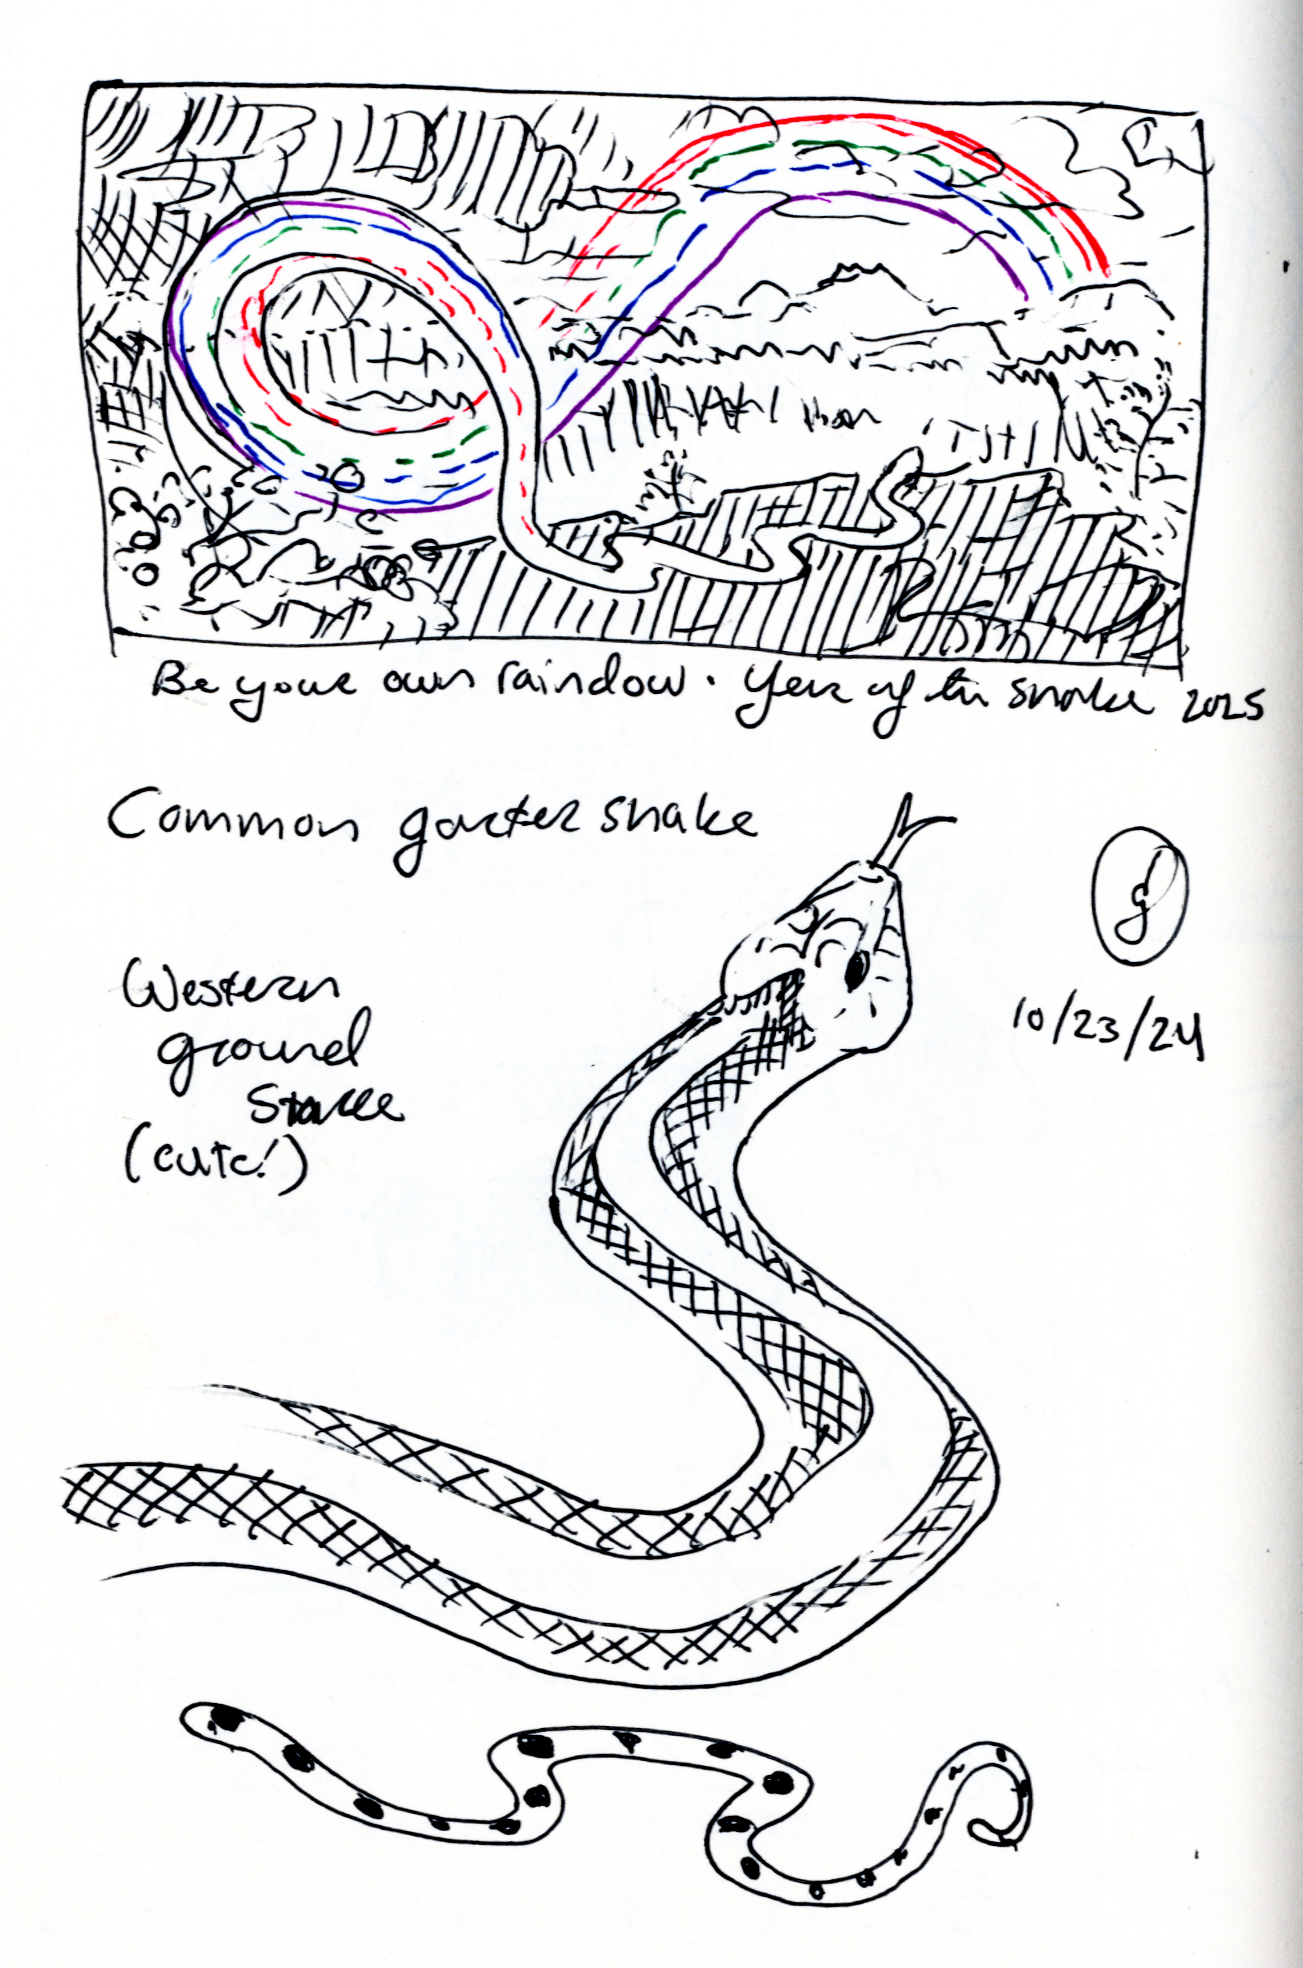 Be your own rainbow. Year of the snake 2025
Common garter snake
Western
ground
snake
(cute!)
10/23/24